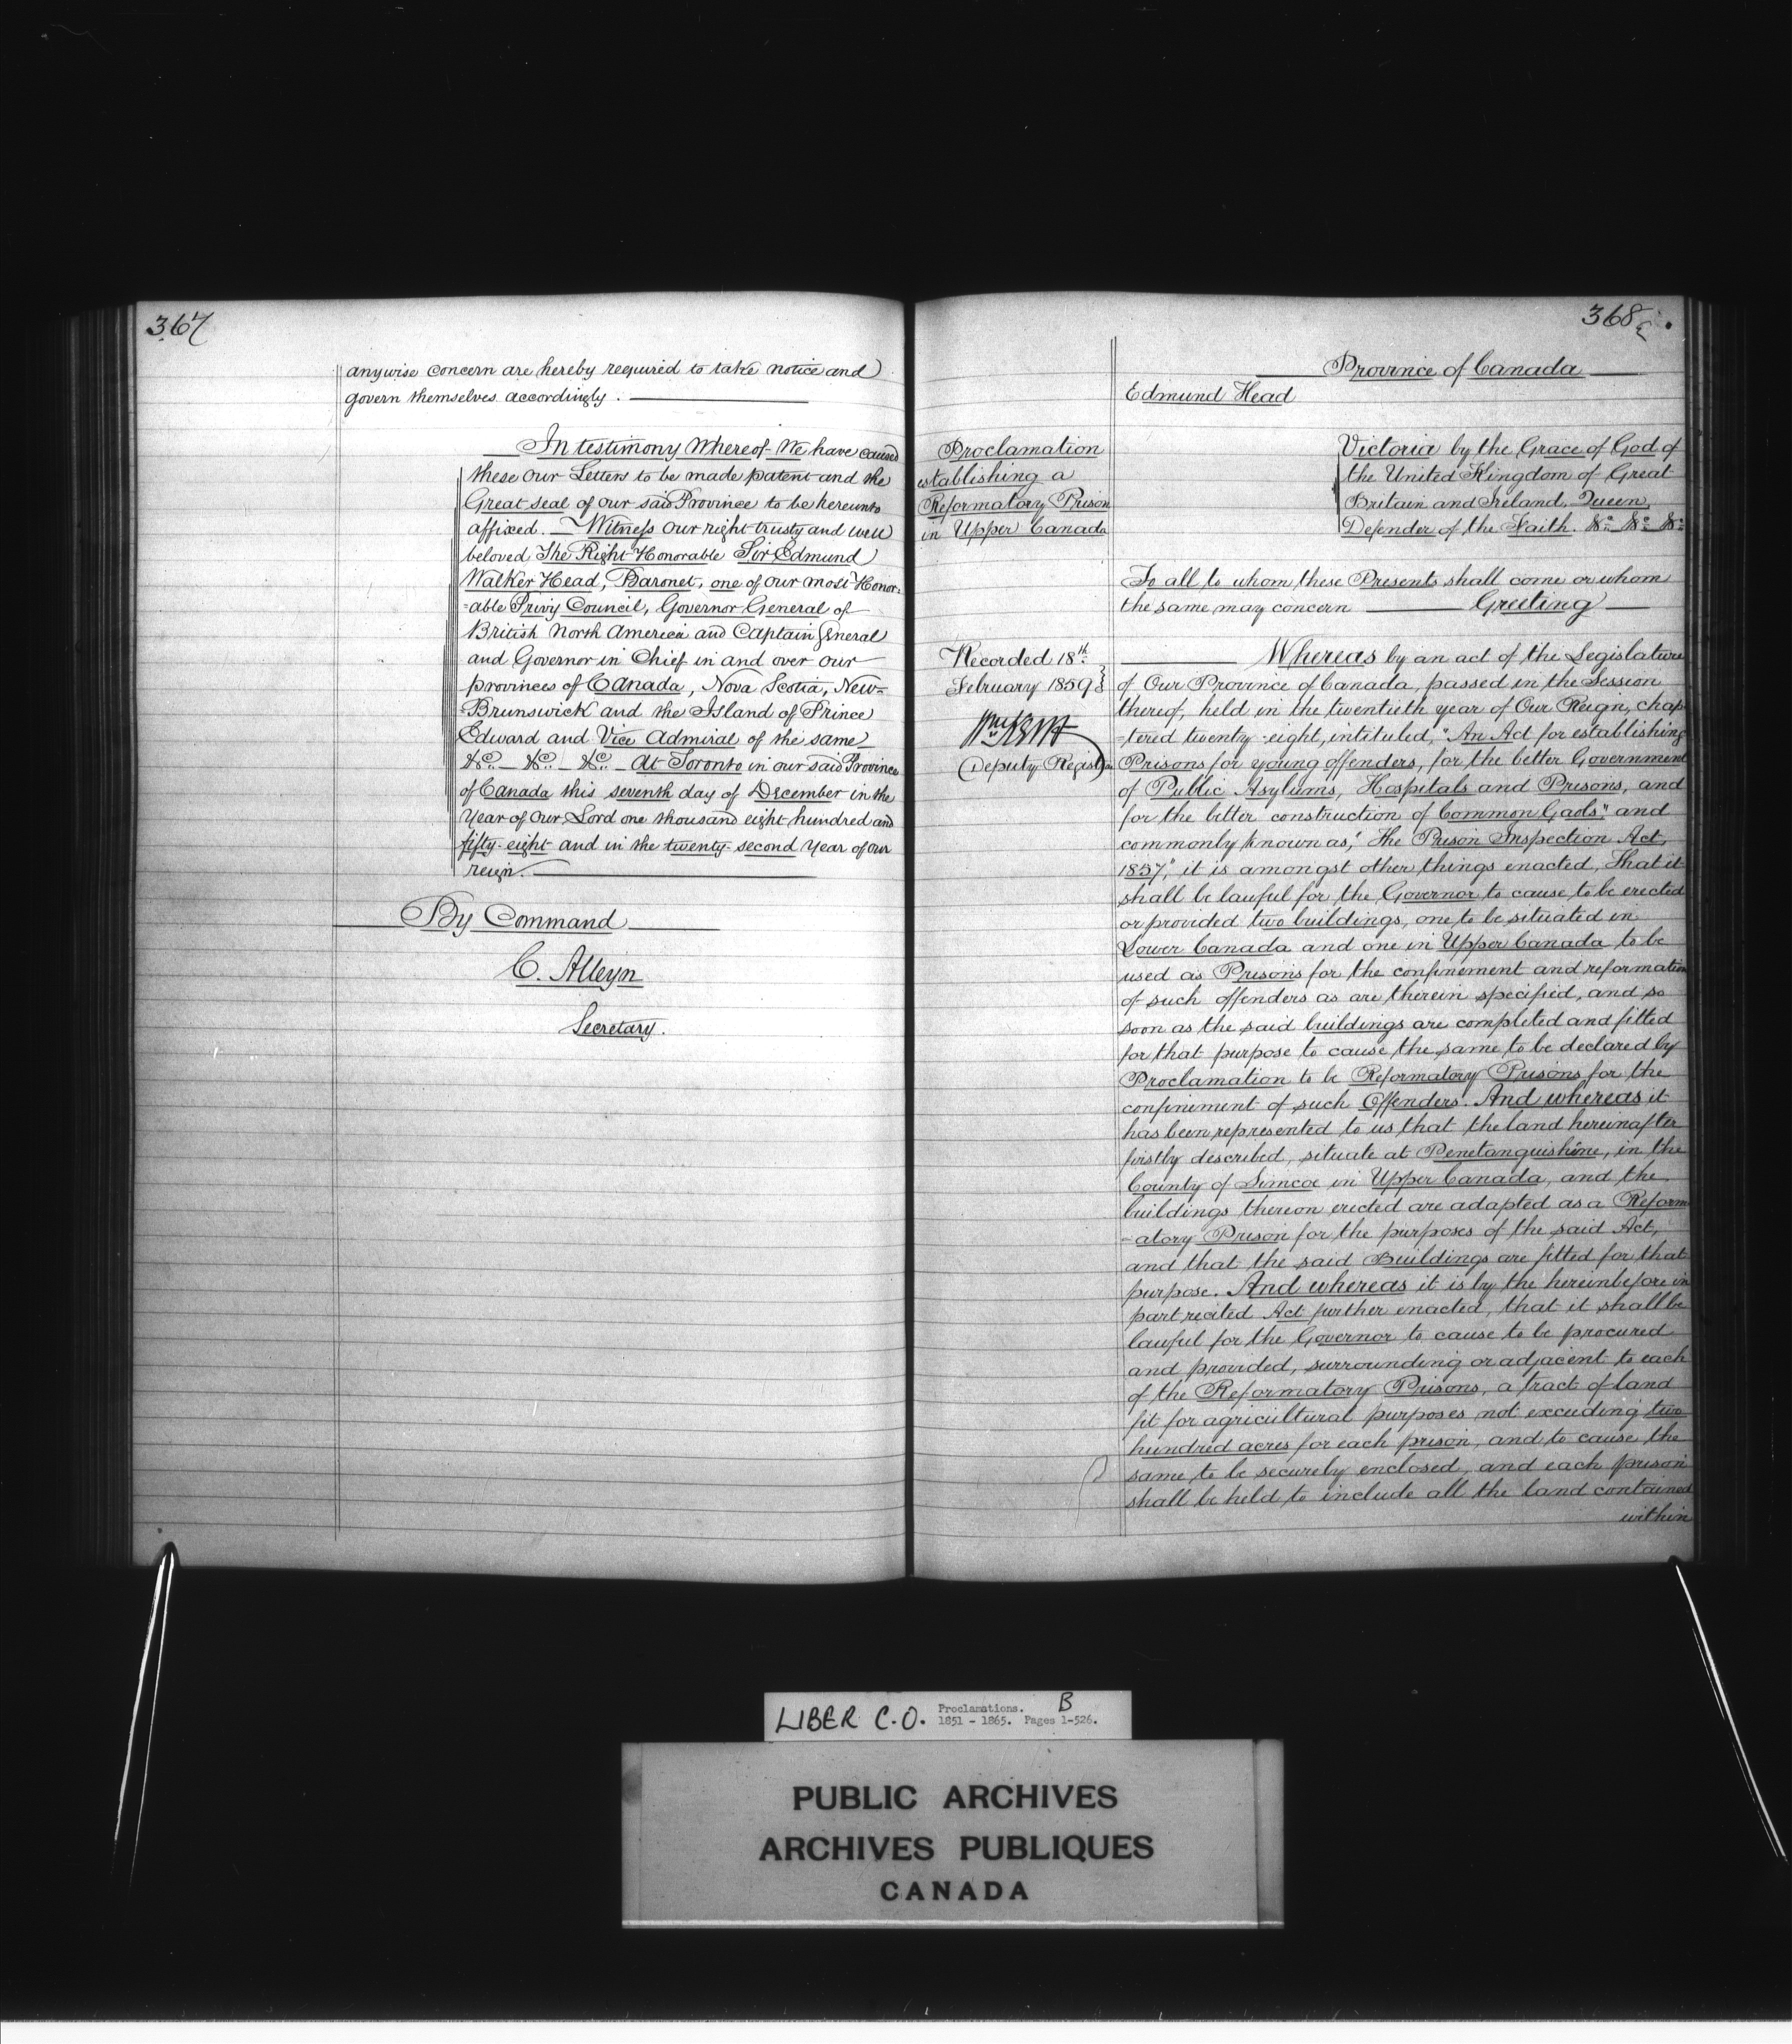 367
anywise concern are hereby required to take notice and
govern themselves accordingly.
In testimony Whereof We have caused
these Our Letters to be made patent and the
Great seal of our said Province to be hereunto
affixed. — Witness our right trusty and well
beloved The Right Honorable Sir Edmund
Walker Head, Baronet, one of our most Honor-
=able Privy Council, Governor General of
British North America and Captain General
and Governor in Chief in and over our
provinces of Canada, Nova Scotia, New=
Brunswick and the Island of Prince
Edward and Vice Admiral of the same
&c. — &c. — &c. — At Toronto in our said Province
of Canada this seventh day of December in the
Year of Our Lord one thousand eight hundred and
fifty-eight and in the twenty-second Year of our
reign.
By Command
C. Alleyn
Secretary.
368
Province of Canada
Edmund Head
Proclamation
establishing a
Reformatory Prison
in Upper Canada
Victoria by the Grace of God of
the United Kingdom of Great
Britain and Ireland, Queen,
Defender of the Faith. &c. &c. &c.
To all to whom these Presents shall come or whom
the same may concern — Greeting
Recorded 18th
February 1859
Deputy Registrar
Whereas by an act of the Legislature
of Our Province of Canada, passed in the Session
thereof, held in the twentieth year of Our Reign, chap-
-tered twenty-eight, intituled, "An Act for establishing
Prisons for young offenders, for the better Government
of Public Asylums, Hospitals and Prisons, and
for the better construction of Common Gaols" and
commonly known as, "the Prison Inspection Act,
1857," it is amongst other things enacted, that it
shall be lawful for the Governor to cause to be erected
or provided two buildings, one to be situated in
Lower Canada and one in Upper Canada to be
used as Prisons for the confinement and reformation
of such offenders as are therein specified, and so
soon as the said buildings are completed and fitted
for that purpose to cause the same to be declared by
Proclamation to be Reformatory Prisons for the
confinement of such Offenders. And whereas it
has been represented to us that the land hereinafter
firstly described, situate at Penetanguishine, in the
County of Simcoe in Upper Canada, and the
buildings thereon erected are adapted as a Reform
-atory Prison for the purposes of the said Act,
and that the said Buildings are fitted for that
purpose. And whereas it is by the hereinbefore in
part recited Act further enacted, that it shall be
lawful for the Governor to cause to be procured
and provided, surrounding or adjacent to each
of the Reformatory Prisons, a tract of land
fit for agricultural purposes not exceeding two
hundred acres for each prison, and to cause the
same to be securely enclosed, and each prison
shall be held to include all the land contained
within
LIBER C.O. Proclamations. B
1851 - 1865. Pages 1-526.
PUBLIC ARCHIVES
ARCHIVES PUBLIQUES
CANADA